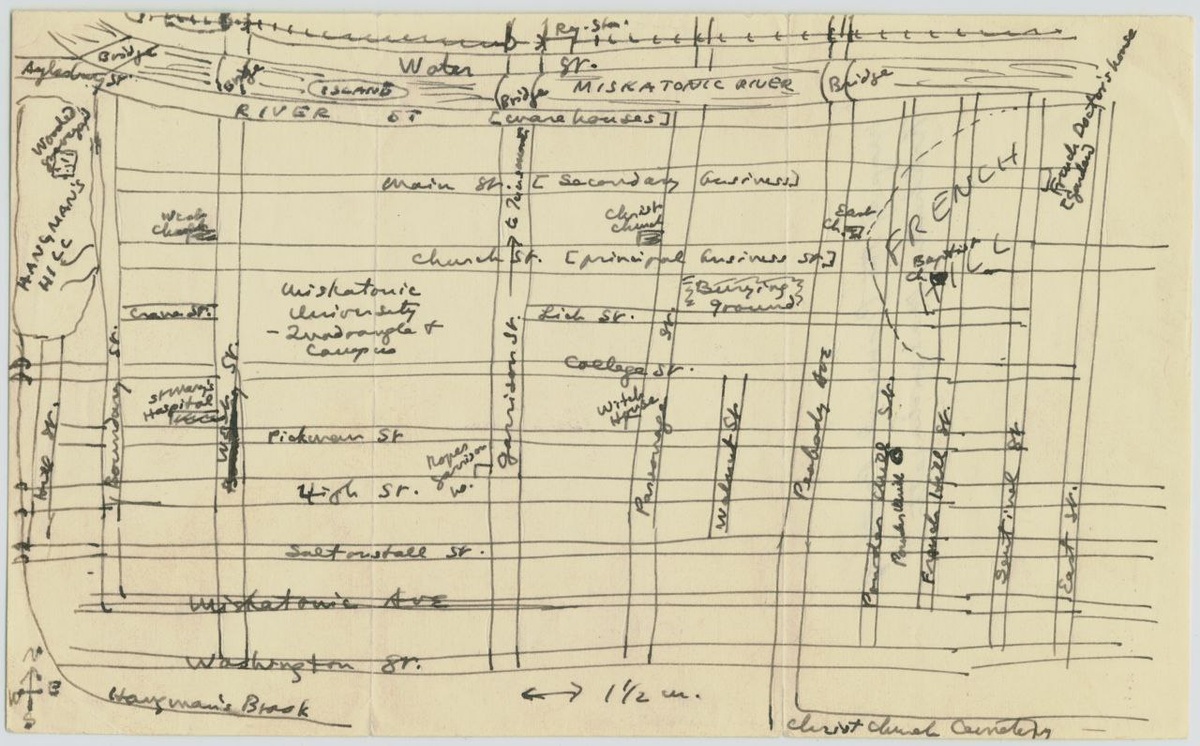 Ry. Sta.
Bridge
Water St.
Aylesbury St.
Bridge
ISLAND
Bridge
MISKATONIC RIVER
Bridge
RIVER ST [warehouses]
French Doctor's house
[garden]
Wooded
HANGMAN'S
HILL
Main St. [Secondary business]
Christ
Church
East
Ch.
FRENCH
HILL
Church St. [principal business St.]
Baptist
Ch.
Miskatonic
University
- Quadrangle &
Campus
Burying
ground
Crane St.
Lich St.
College St.
St Mary's
Hospital
Witch
House
Pickman St
High St.
W.
Saltonstall St.
Miskatonic Ave
Washington St.
Hill St.
Boundary St.
West St.
Garrison St.
Parsonage St.
Walnut St
Peabody Ave
Powder Mill St.
Powder Mill
French Hill St.
Sentinel St
East St.
Hangman's Brook
1 1/2 m.
Christ Church Cemetery